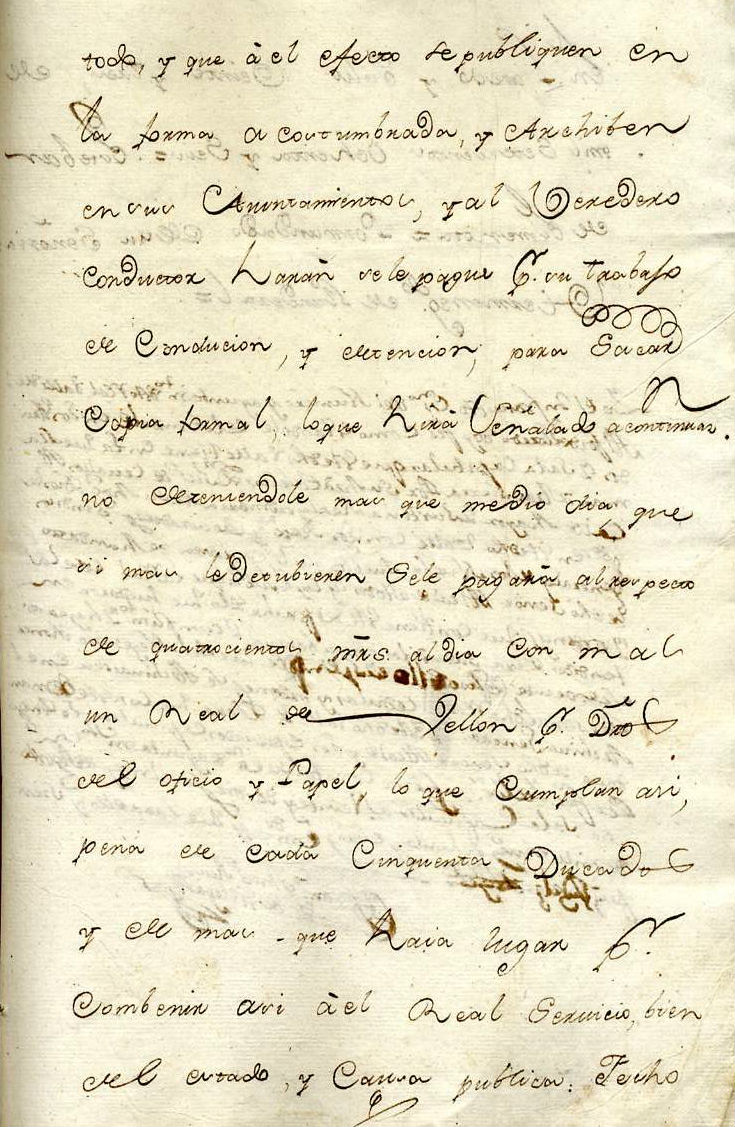 todo, y que à el efecto se publiquen en
la forma acostumbrada, y Archiben
en sus Ayuntamientos, y al Veredero
Conductor harán se le pague Pr. su trabajo
de Conducion, y detencion, para Sacar
Copia formal, lo que hirà Señalado a continuazn.
no deteniendole mas que medio dia, que
si mas le detubieren Sele pagarà al respecto
de quatrocientos mrs. al dia con mas
un Real de Vellon Pr. Dros
del oficio y Papel, lo que Cumplan asi,
pena de cada Cinquenta Ducados
y de mas que haia lugar Pr.
Combenir asi à el Real Servicio, bien
del estado, y Causa publica: Fecho